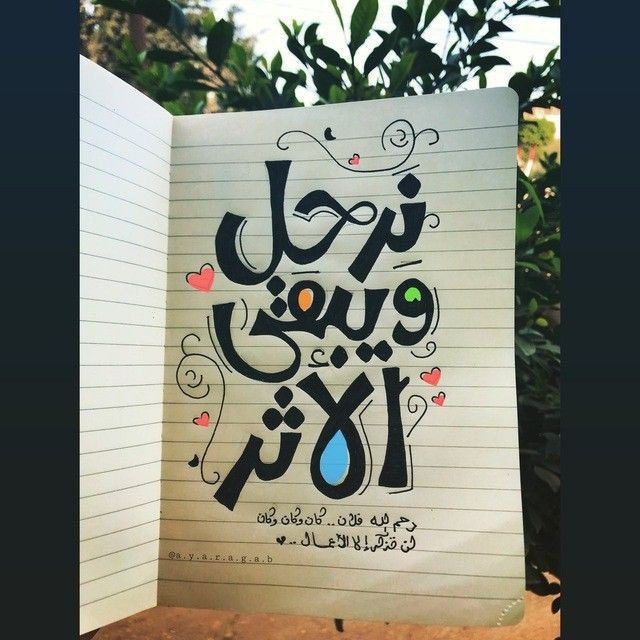 نَرحَل
ويبقى
الأثر
رحم الله فلان.. كان وكان وكان
لن تذكر إلا الأعمال..
@a.y.a.r.a.g.a.b